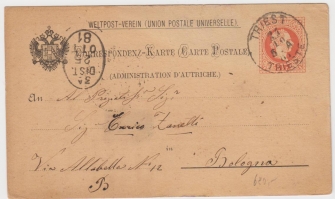 WELTPOST-VEREIN (UNION POSTALE UNIVERSELLE)
CORRESPONDENZ-KARTE (CARTE POSTALE)
(ADMINISTRATION D'AUTRICHE.)
TRIEST
TRIESTE
81
25
DIST.
An
Sig Enrico Zanetti
Via Altabella No 12
Bologna